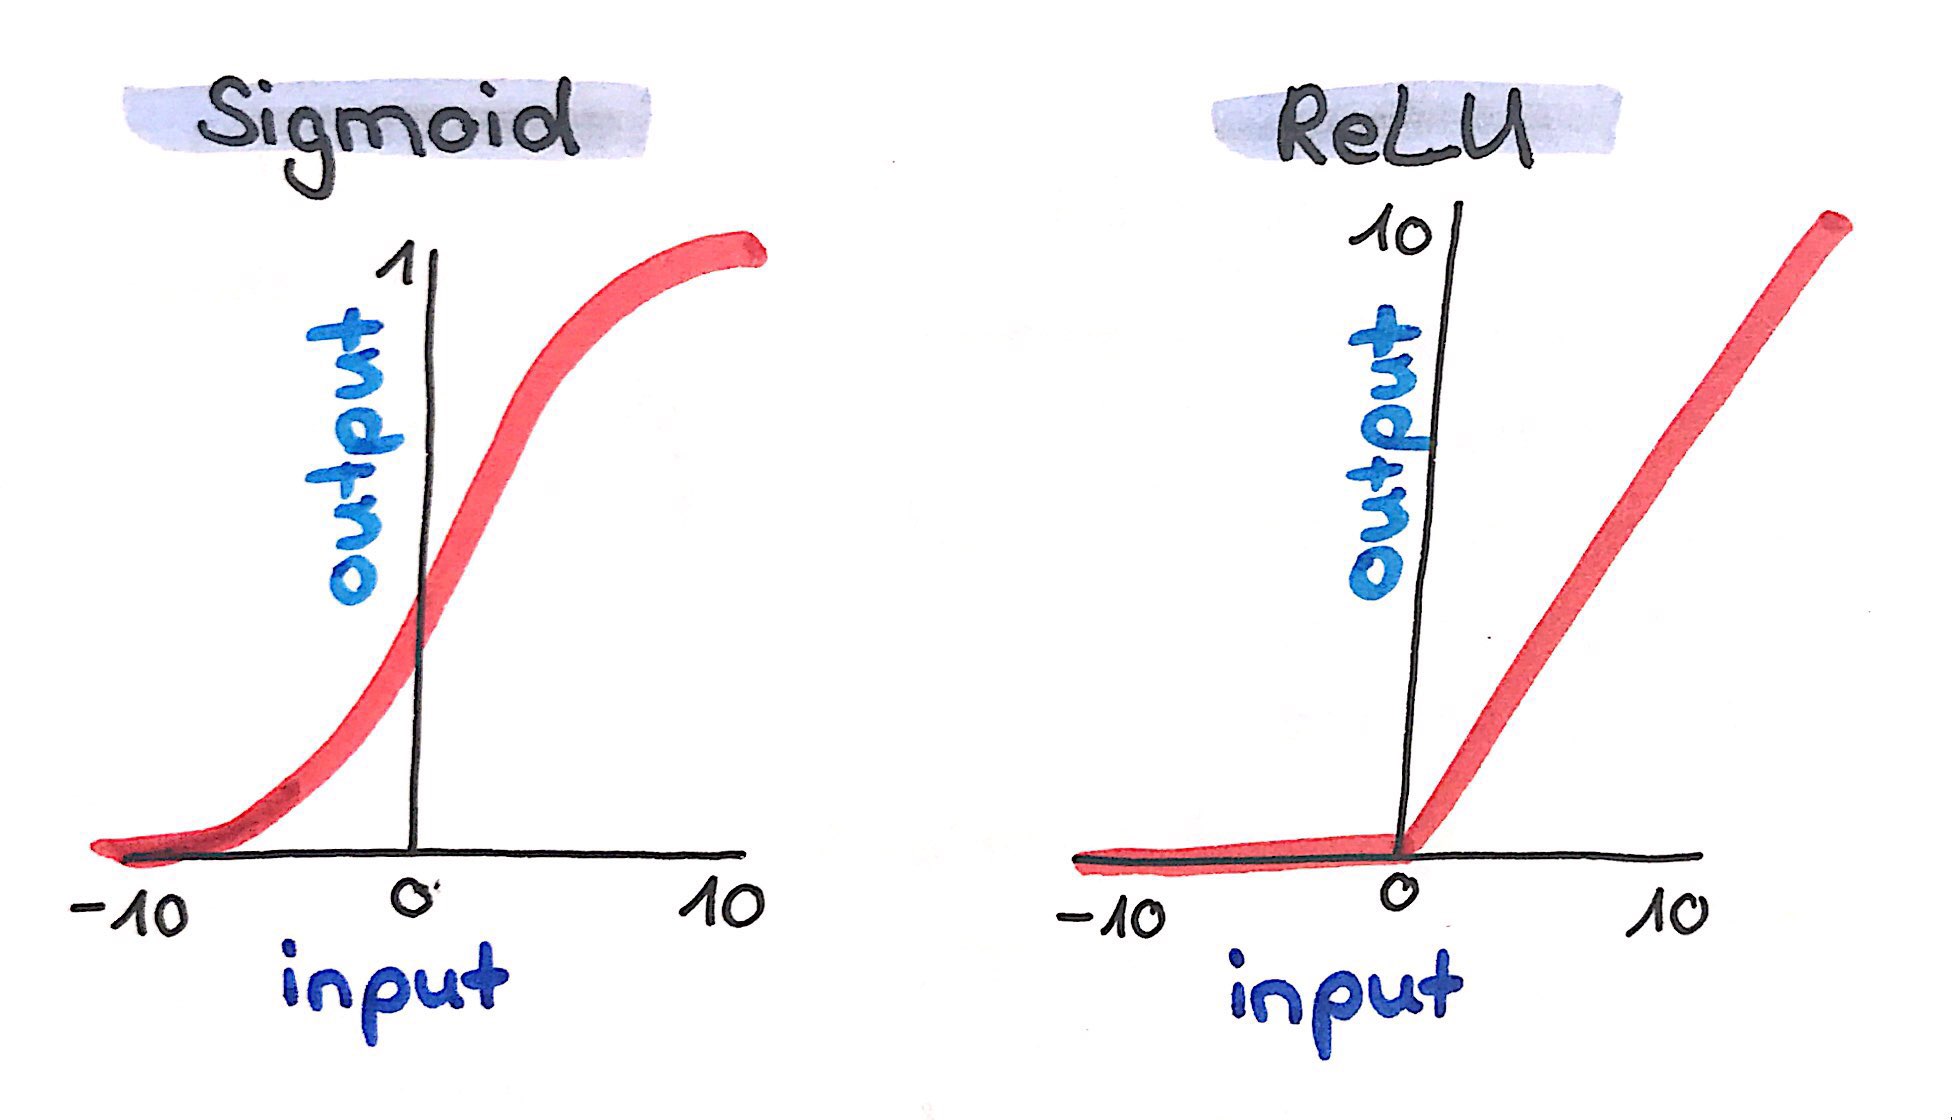 Sigmoid
1
output
-10
0
10
input
ReLU
10
output
-10
0
10
input